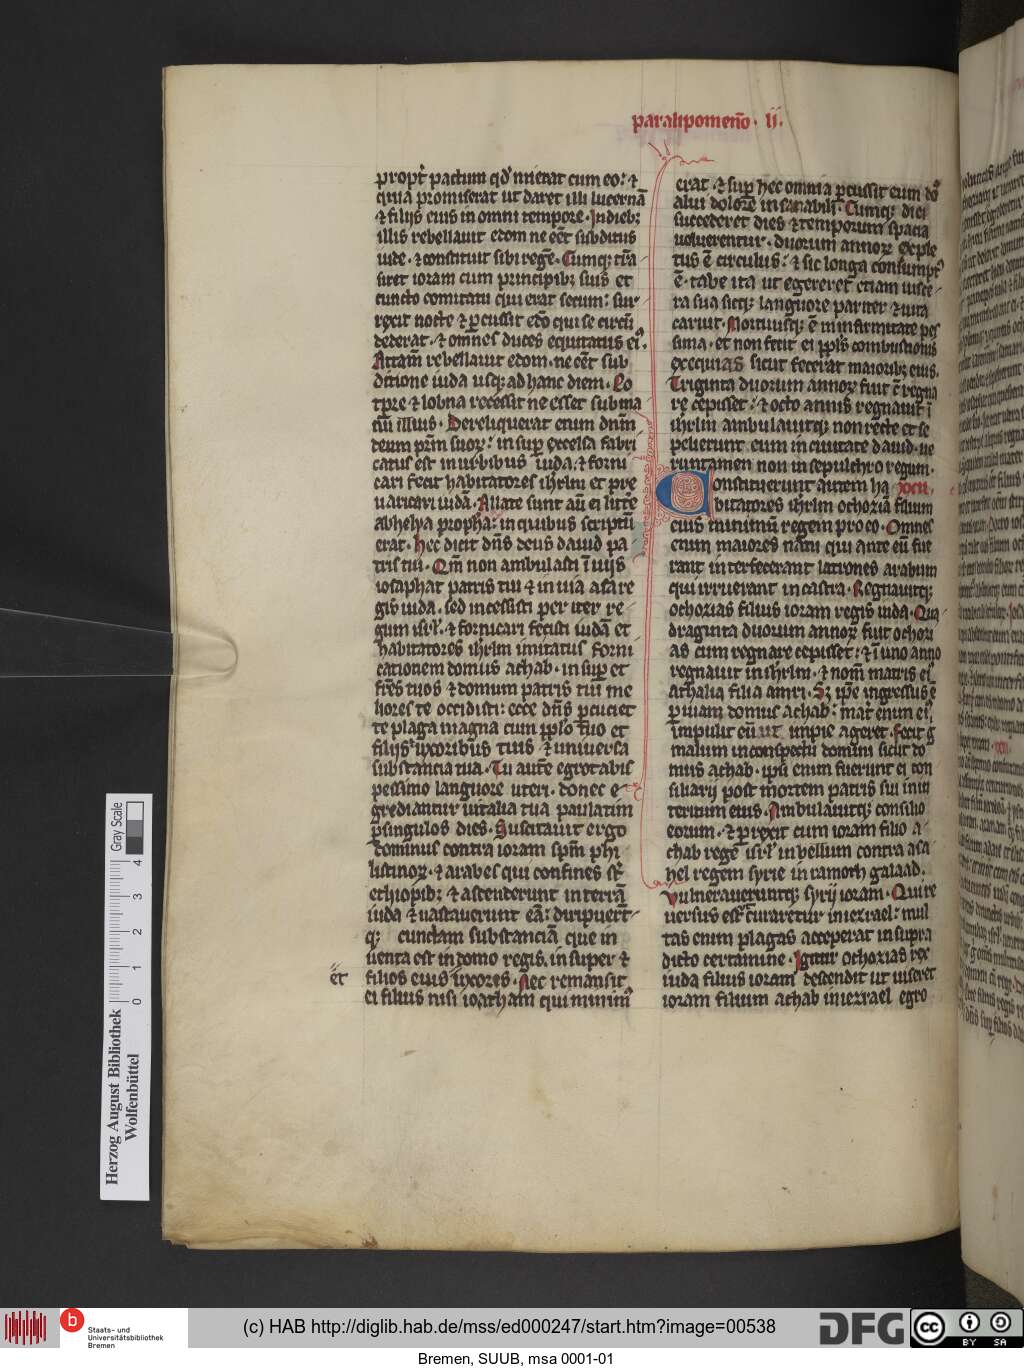 paralipomeño · ii·
propt̃ pactum qd̛ inierat cum eo: ⁊
quia promiserat ut daret illi lucernā
⁊ filijs eius in omni tempore. In dieb;
illis rebellauit edom ne eēt subditus
iude. ⁊ constituit sibi regē. Cumq; trā
siret ioram cum principib; suis et
cuncto comitatu qui erat secum: sur
rexit nocte ⁊ ꝑcussit edō qui se circū
dederat. ⁊ omnes duces equitatus ei᷒.
Attam̄ rebellauit edom. ne eēt sub
ditione iuda usq; ad hanc diem. Eo
tꝑre ⁊ lobna recessit ne esset sub ma
nū illius. Dereliquerat enim dn̄m
deum pr̄m suoꝝ: insuꝑ excelsa fabri
catus est in urbibus iuda. ⁊ forni
cari fecit habitatores ihrlm et pre
uaricari iudā. Allate sunt aū ei litt̄e
ab helya propha: in quibus scriptū
erat. Hec dicit dn̄s deus dauid pa
tris tui. Qm̄ non ambulasti ī uijs
iosaphat patris tui ⁊ in uia asa re
gis iuda. sed incessisti per iter re
gum isrl̄. ⁊ fornicari fecisti iudā et
habitatores ihrlm imitatus forni
cationem domus achab. insuꝑ et
fr̄es tuos ⁊ domum patris tui me
liores te occidisti: ecce dn̄s ꝑcuciet
te plaga magna cum pplo tuo et
filijs ⁊ uxoribus tuis ⁊ uniuersa
substancia tua. Tu aut̄e egrotabis
pessimo languore uteri. donec e
grediantur uitalia tua paulatim
ꝑ singulos dies. Suscitauit ergo
dominus contra ioram spm̄ phi
listinoꝝ. ⁊ arabes qui confines st̄
ethiopib; ⁊ ascenderunt in terrā
iuda ⁊ uastauerunt eā: diripuert̄
q; cunctam substanciā que in
uenta est in domo regis. insuper ⁊
et
filios eius ⁊ uxores. Nec remansit
ei filius nisi ioatham qui minim᷒
erat. ⁊ suꝑ hec omnia ꝑcussit eum dō
alui dolore insanabili. Cumq; diei
succederet dies ⁊ temporum spacia
uoluerentur. duorum annoꝝ exple
tus ē circulus: ⁊ sic longa consumpt᷒
ē. tabe ita ut egereret etiam uisce
ra sua sicq; languore pariter ⁊ uita
caruit. Mortuusq; ē in infirmitate pes
sima. et non fecit ei pplus combustionis
exequias sicut fecerat maiorib; eius.
Triginta duorum annoꝝ fuit cū regna
re cepisset: ⁊ octo annis regnauit ī
ihrlm ambulauitq; non recte et se
pelierunt eum in ciuitate dauid. ue
runtamen non in sepulchro regum.
Constituerunt autem ha xxii.
bitatores ihrlm ochoziā filium
eius minimū regem pro eo. Omnes
enim maiores natu qui ante eū fue
rant interfecerant latrones arabum
qui irruerant in castra. Regnauitq;
ochozias filius ioram regis iuda. Qua
draginta duorum annoꝝ fuit ochozi
as cum regnare cepisset: ⁊ ī uno anno
regnauit in ihrlm. ⁊ nom̄ matris ei᷒
athalia filia amri. S; ipē ingressus ē
ꝑ uiam domus achab: mat̄ enim ei᷒
impulit eū ut impie ageret. Fecit g̊
malum in conspectu domini sicut do
mus achab. ipsi enim fuerunt ei con
siliarij post mortem patris sui in in
teritum eius. Ambulauitq; consilio
eorum. ⁊ ꝑrexit cum ioram filio a
chab rege isrl̄ in bellum contra asa
hel regem syrie in ramoth galaad.
Vulneraueruntq; syrij ioram. Qui re
uersus est ut curaretur in iezrael: mul
tas enim plagas acceperat in supra
dicto certamine. Igitur ochozias rex
iuda filius ioram descendit ut uiseret
ioram filium achab in iezrael egro
Herzog August Bibliothek
Wolfenbüttel
Gray Scale
0 1 2 3 4
b Staats- und
Universitätsbibliothek
Bremen
(c) HAB http://diglib.hab.de/mss/ed000247/start.htm?image=00538
DFG
cc BY SA
Bremen, SUUB, msa 0001-01